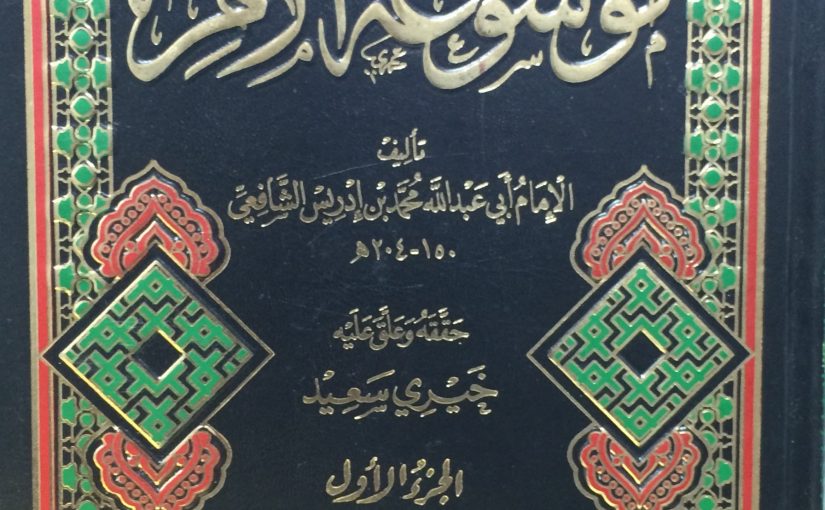 موسوعة الأم
تأليف
الإمام أبي عبد الله محمد بن إدريس الشافعي
١٥٠-٢٠٤هـ
حققه وعلق عليه
خيري سعيد
الجزء الأول